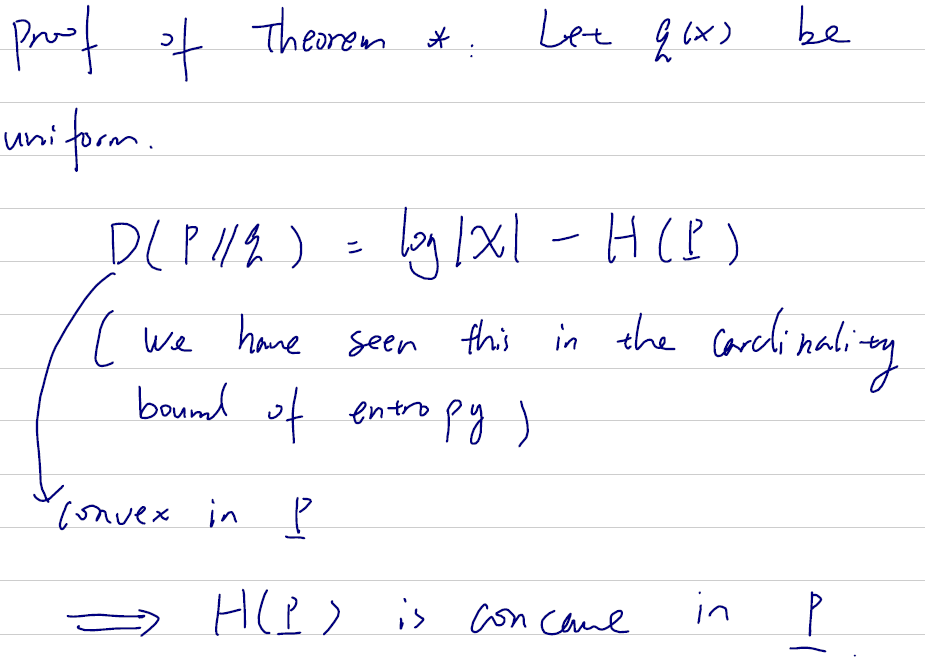 Proof of Theorem *: Let q(x) be
uniform.
D(P//q) = log|X| - H(P)
(we have seen this in the cardinality
bound of entropy)
convex in P
⟹ H(P) is concave in P.